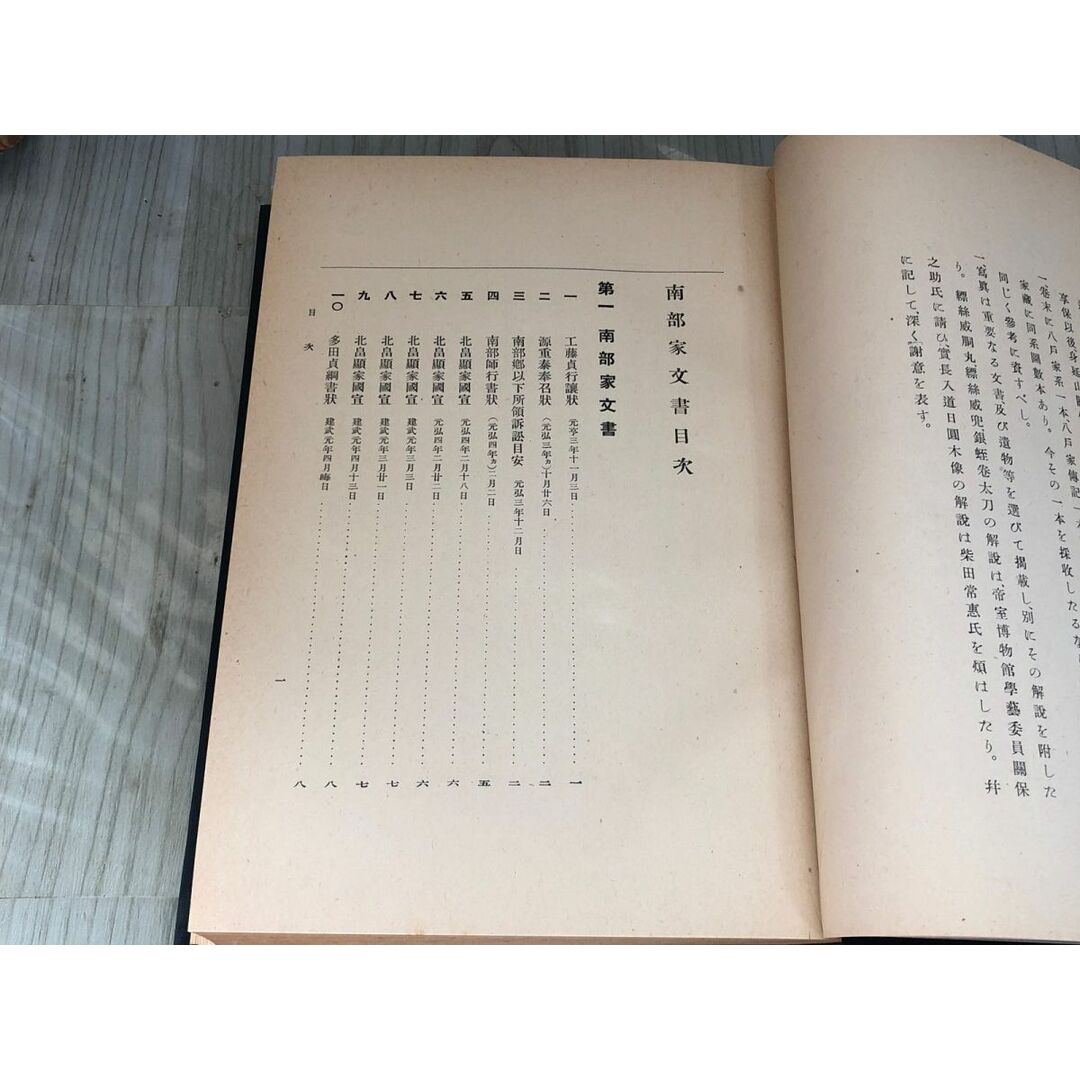 享保以後身延山關
一、卷末に八戶家系一本八戶家傳記一本
家藏に同系圖數本あり。今その一本を採收したるな
同じく參考に資すべし。
一、寫眞は重要なる文書及び遺物等を選びて揭載し、別にその解說を附した
り。縹絲威胴丸、縹絲威兜、銀蛭卷太刀の解說は、帝室博物館學藝委員關保
之助氏に請ひ、實長入道日圓木像の解說は柴田常惠氏を煩はしたり。幷
に記して、深く謝意を表す。
南部家文書目次
第一 南部家文書
一 工藤貞行讓狀 元亨三年十一月三日 一
二 源重泰奉召狀 (元弘三年ヵ)十月廿六日 二
三 南部鄕以下所領訴訟目安 元弘三年十二月日 二
四 南部師行書狀 (元弘四年ヵ)二月二日 五
五 北畠顯家國宣 元弘四年二月十八日 六
六 北畠顯家國宣 元弘四年二月廿二日 六
七 北畠顯家國宣 建武元年三月三日 七
八 北畠顯家國宣 建武元年三月廿一日 七
九 北畠顯家國宣 建武元年四月十三日 八
一〇 多田貞綱書狀 建武元年四月晦日 八
目次
一